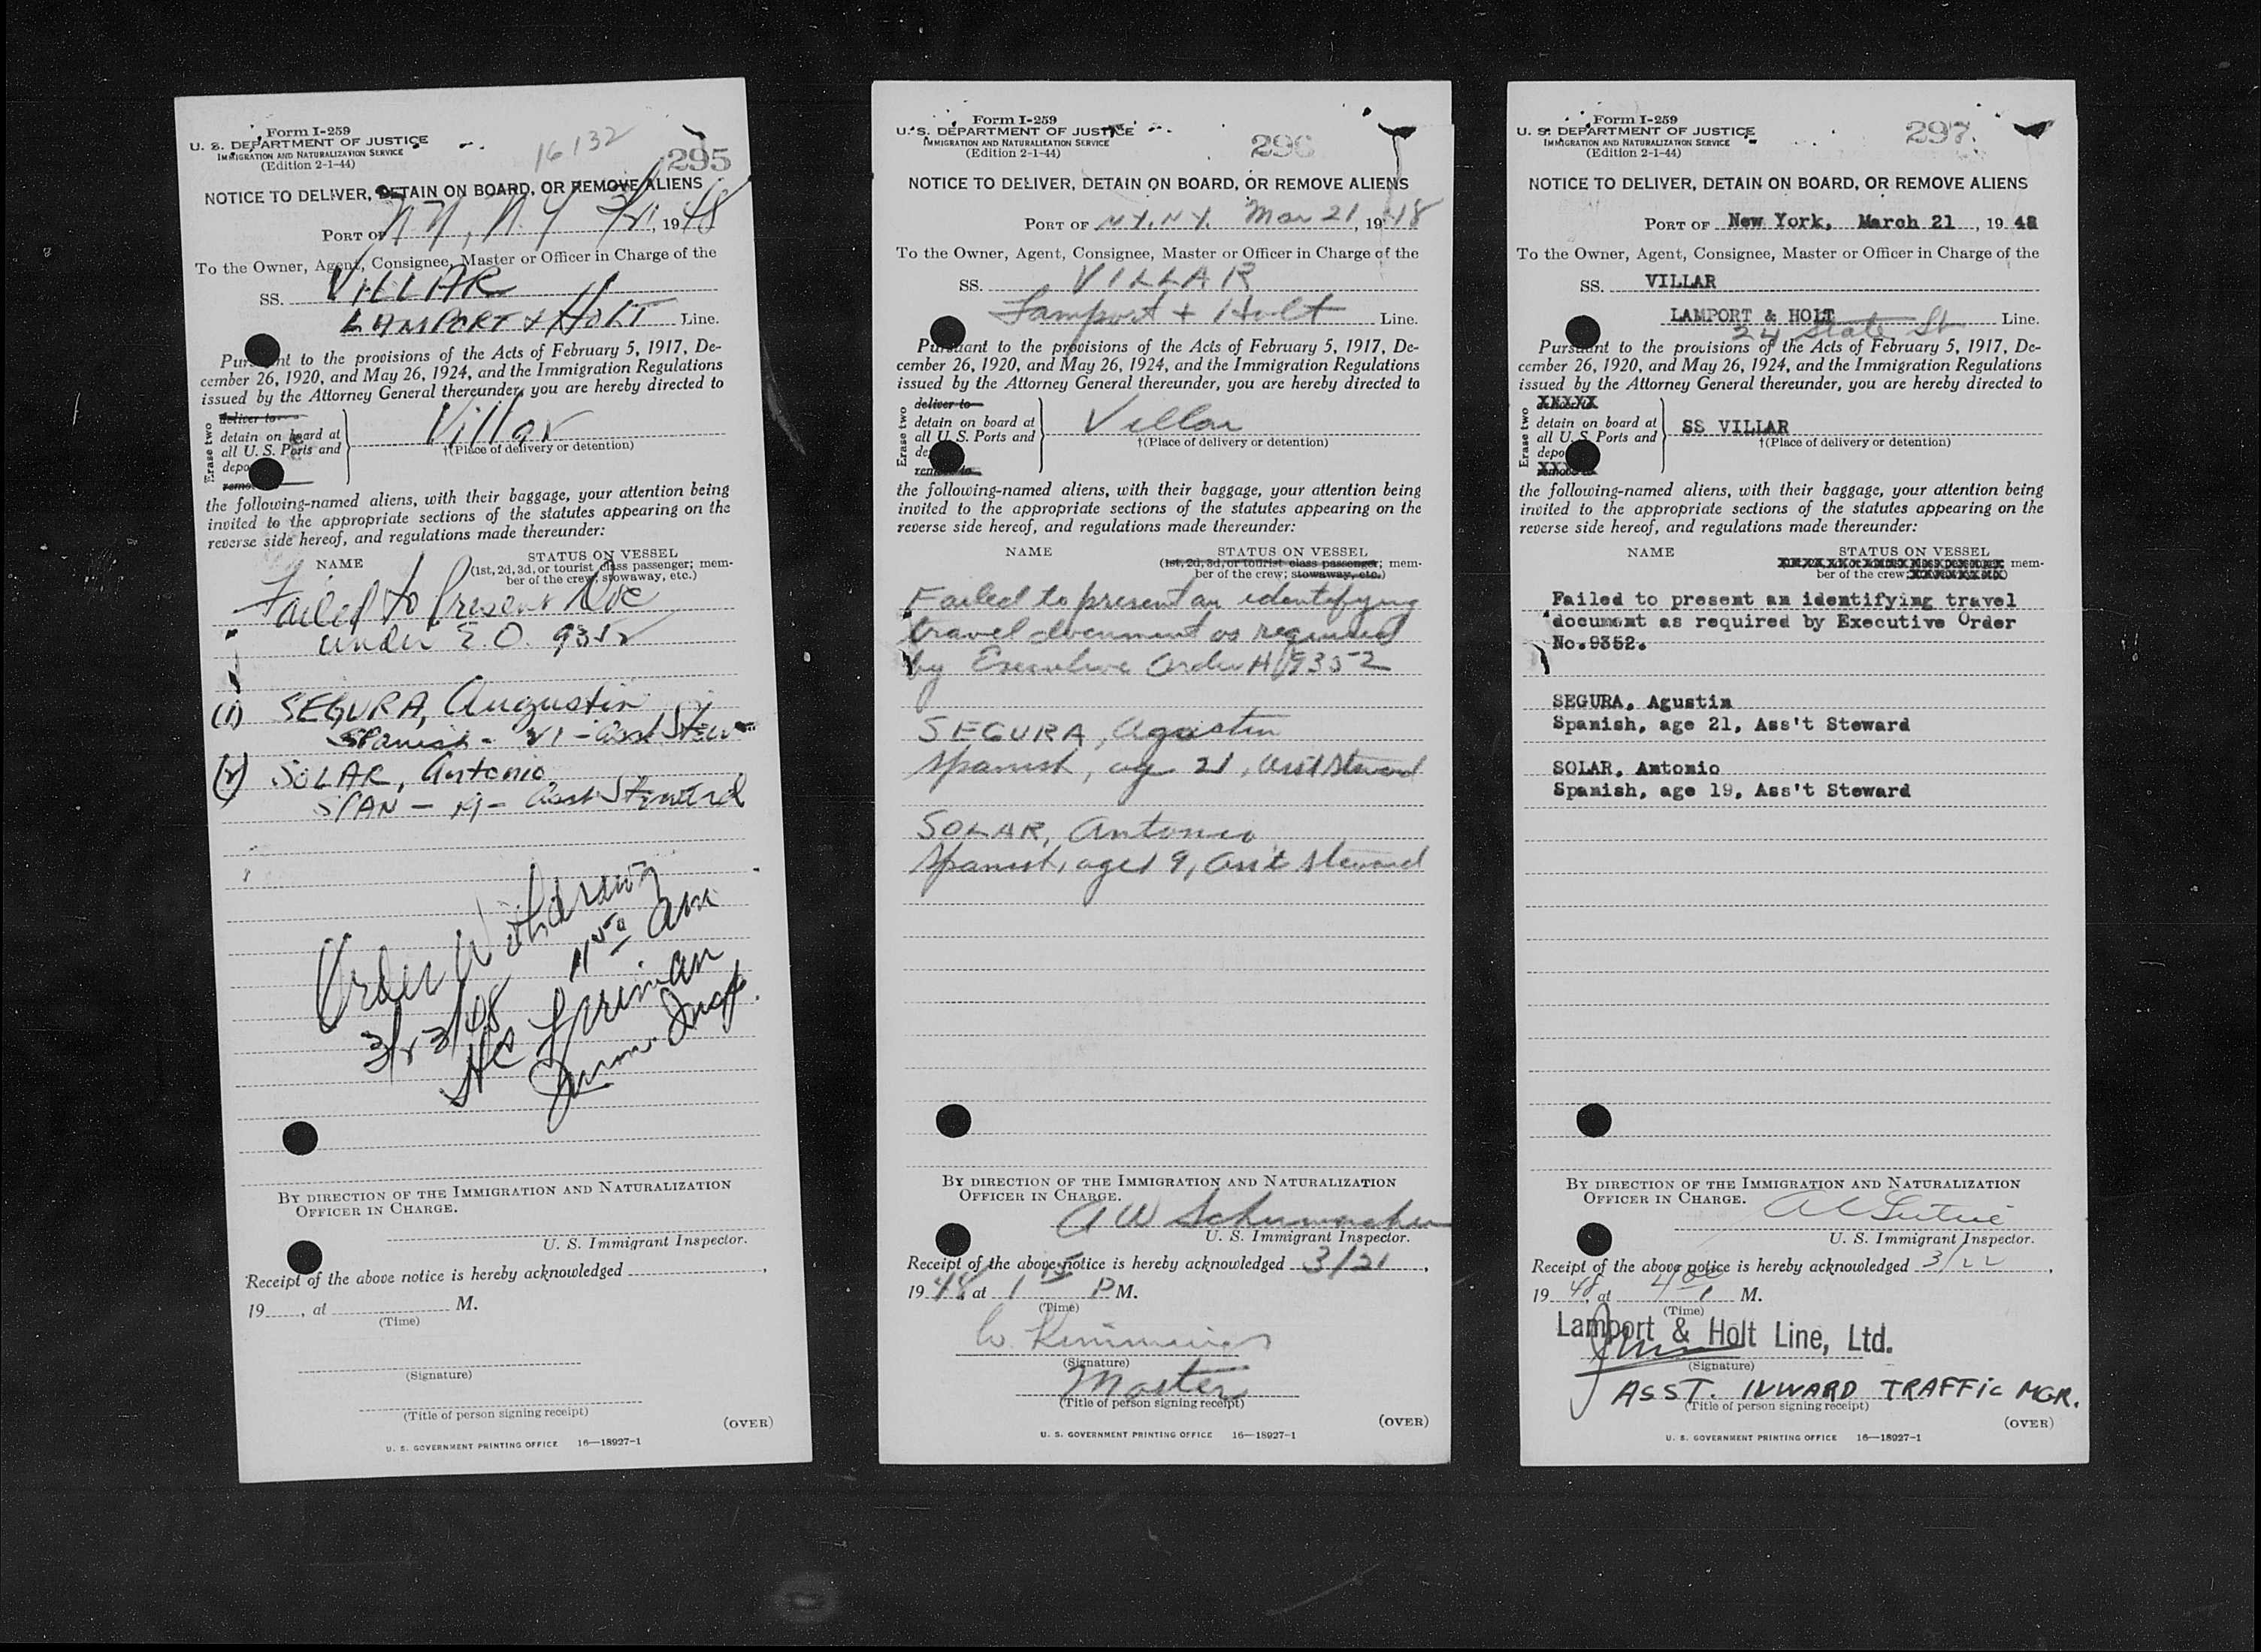 Form I-259
U. S. DEPARTMENT OF JUSTICE
IMMIGRATION AND NATURALIZATION SERVICE
(Edition 2-1-44)
16132
295
NOTICE TO DELIVER, DETAIN ON BOARD, OR REMOVE ALIENS
PORT OF N.Y., N.Y. 3/21, 1948
To the Owner, Agent, Consignee, Master or Officer in Charge of the
SS. VILLAR
LAMPORT & HOLT Line.
Pursuant to the provisions of the Acts of February 5, 1917, De-
cember 26, 1920, and May 26, 1924, and the Immigration Regulations
issued by the Attorney General thereunder, you are hereby directed to
Erase two
deliver to
detain on board at
all U. S. Ports and
depo
remo
Villar
†(Place of delivery or detention)
the following-named aliens, with their baggage, your attention being
invited to the appropriate sections of the statutes appearing on the
reverse side hereof, and regulations made thereunder:
NAME
STATUS ON VESSEL
(1st, 2d, 3d, or tourist class passenger; mem-
ber of the crew; stowaway, etc.)
Failed to Present Doc
under E.O. 9352
(1) SEGURA, Augustin
Spanish - 21 - Asst Stew
(2) SOLAR, Antonio
SPAN - 19 - Asst Steward
Order Withdrawn
3/23/48 11 50 AM
Immn. Insp.
BY DIRECTION OF THE IMMIGRATION AND NATURALIZATION
OFFICER IN CHARGE.
U. S. Immigrant Inspector.
Receipt of the above notice is hereby acknowledged ,
19 , at M.
(Time)
(Signature)
(Title of person signing receipt)
(OVER)
U. S. GOVERNMENT PRINTING OFFICE 16—18927-1
Form I-259
U. S. DEPARTMENT OF JUSTICE
IMMIGRATION AND NATURALIZATION SERVICE
(Edition 2-1-44)
296
NOTICE TO DELIVER, DETAIN ON BOARD, OR REMOVE ALIENS
PORT OF N.Y. N.Y. Mar 21, 1948
To the Owner, Agent, Consignee, Master or Officer in Charge of the
SS. VILLAR
Lamport + Holt Line.
Pursuant to the provisions of the Acts of February 5, 1917, De-
cember 26, 1920, and May 26, 1924, and the Immigration Regulations
issued by the Attorney General thereunder, you are hereby directed to
Erase two
deliver to
detain on board at
all U. S. Ports and
de
remove to
Villar
†(Place of delivery or detention)
the following-named aliens, with their baggage, your attention being
invited to the appropriate sections of the statutes appearing on the
reverse side hereof, and regulations made thereunder:
NAME
STATUS ON VESSEL
(1st, 2d, 3d, or tourist class passenger; mem-
ber of the crew; stowaway, etc.)
Failed to present an identifying
travel document as required
by Executive Order # 9352
SEGURA, Agustin
Spanish, age 21, Ass't Steward
SOLAR, Antonio
Spanish, age 19, Ass't Steward
BY DIRECTION OF THE IMMIGRATION AND NATURALIZATION
OFFICER IN CHARGE.
A W Schumacher
U. S. Immigrant Inspector.
Receipt of the above notice is hereby acknowledged 3/21,
1948, at 1 15 P M.
(Time)
(Signature)
Master
(Title of person signing receipt)
(OVER)
U. S. GOVERNMENT PRINTING OFFICE 16—18927-1
Form I-259
U. S. DEPARTMENT OF JUSTICE
IMMIGRATION AND NATURALIZATION SERVICE
(Edition 2-1-44)
297
NOTICE TO DELIVER, DETAIN ON BOARD, OR REMOVE ALIENS
PORT OF New York, March 21, 1948
To the Owner, Agent, Consignee, Master or Officer in Charge of the
SS. VILLAR
LAMPORT & HOLT Line.
24 State St
Pursuant to the provisions of the Acts of February 5, 1917, De-
cember 26, 1920, and May 26, 1924, and the Immigration Regulations
issued by the Attorney General thereunder, you are hereby directed to
Erase two
XXXXX
detain on board at
all U. S. Ports and
depo
SS VILLAR
†(Place of delivery or detention)
the following-named aliens, with their baggage, your attention being
invited to the appropriate sections of the statutes appearing on the
reverse side hereof, and regulations made thereunder:
NAME
STATUS ON VESSEL
mem-
ber of the crew
Failed to present an identifying travel
document as required by Executive Order
No.9352.
SEGURA, Agustin
Spanish, age 21, Ass't Steward
SOLAR, Antonio
Spanish, age 19, Ass't Steward
BY DIRECTION OF THE IMMIGRATION AND NATURALIZATION
OFFICER IN CHARGE.
U. S. Immigrant Inspector.
Receipt of the above notice is hereby acknowledged 3/22,
1948, at 4 00 P M.
(Time)
Lamport & Holt Line, Ltd.
(Signature)
ASST. INWARD TRAFFIC MGR.
(Title of person signing receipt)
(OVER)
U. S. GOVERNMENT PRINTING OFFICE 16—18927-1